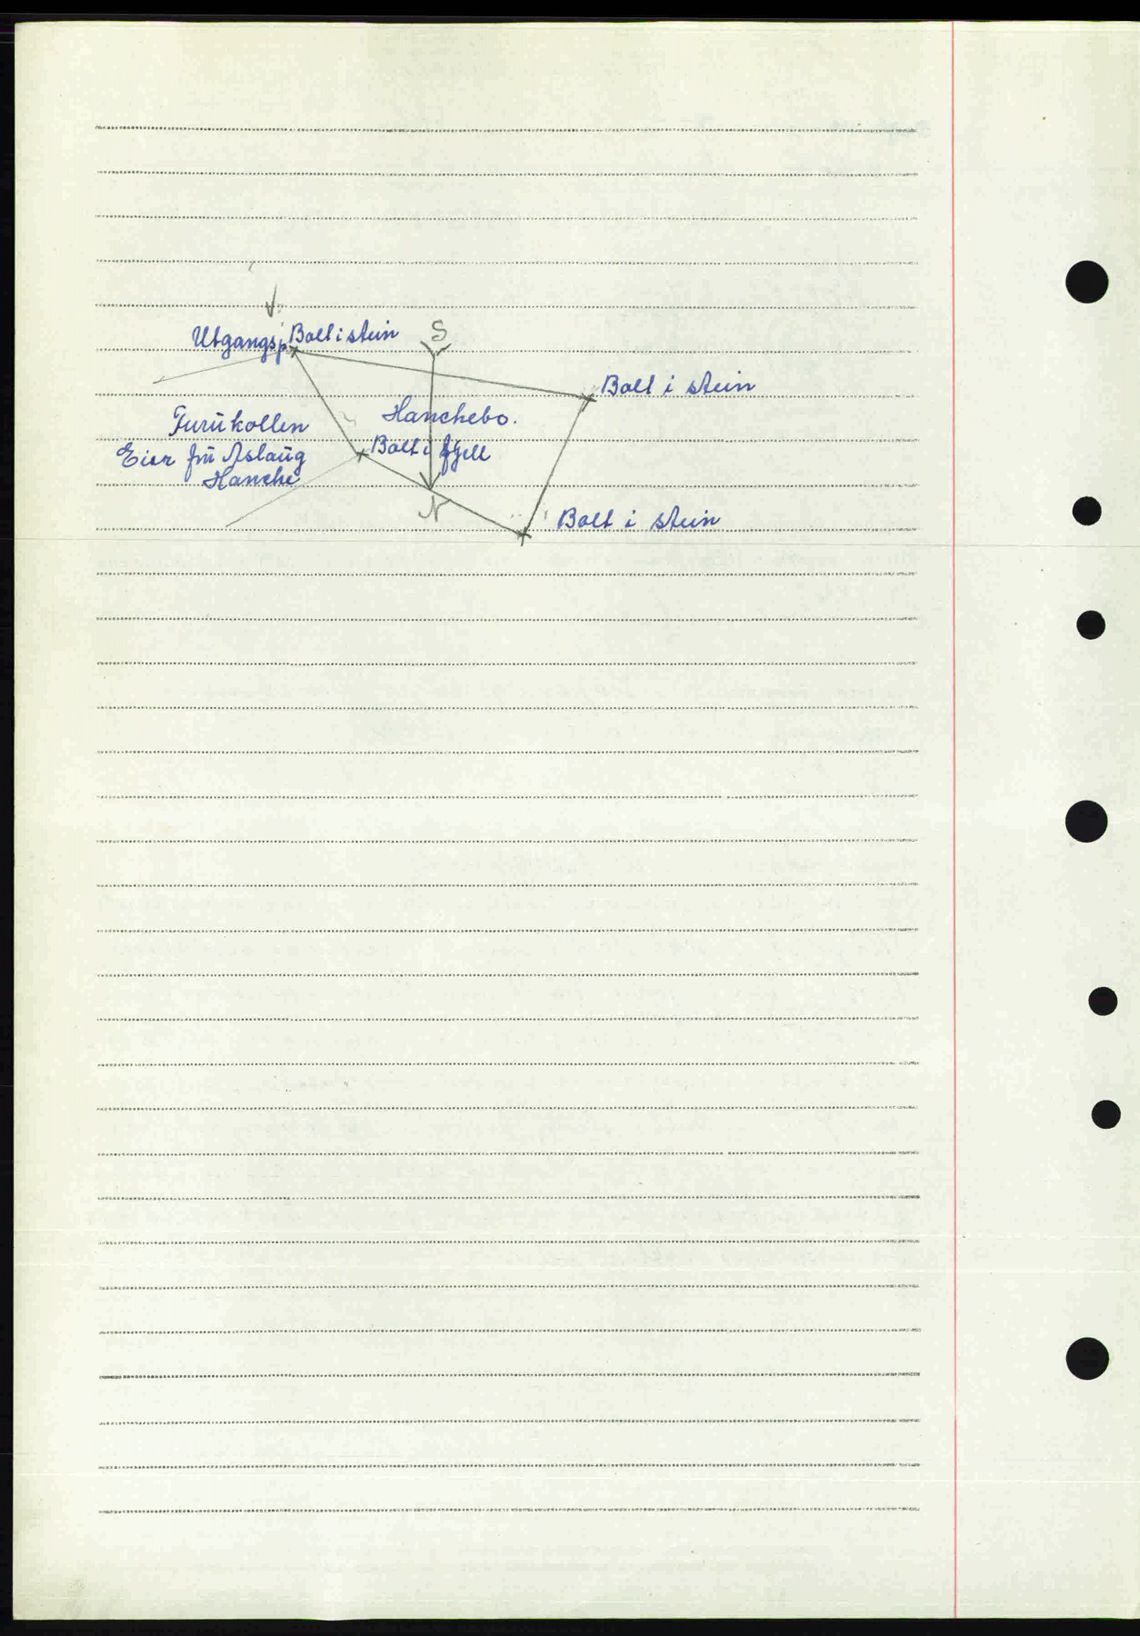 Utgangsp. Bolt i stein
S
Bolt i stein
Furukollen
Hanchebo.
Eier fru Aslaug
Hanche
Bolt i fjell
N
Bolt i stein